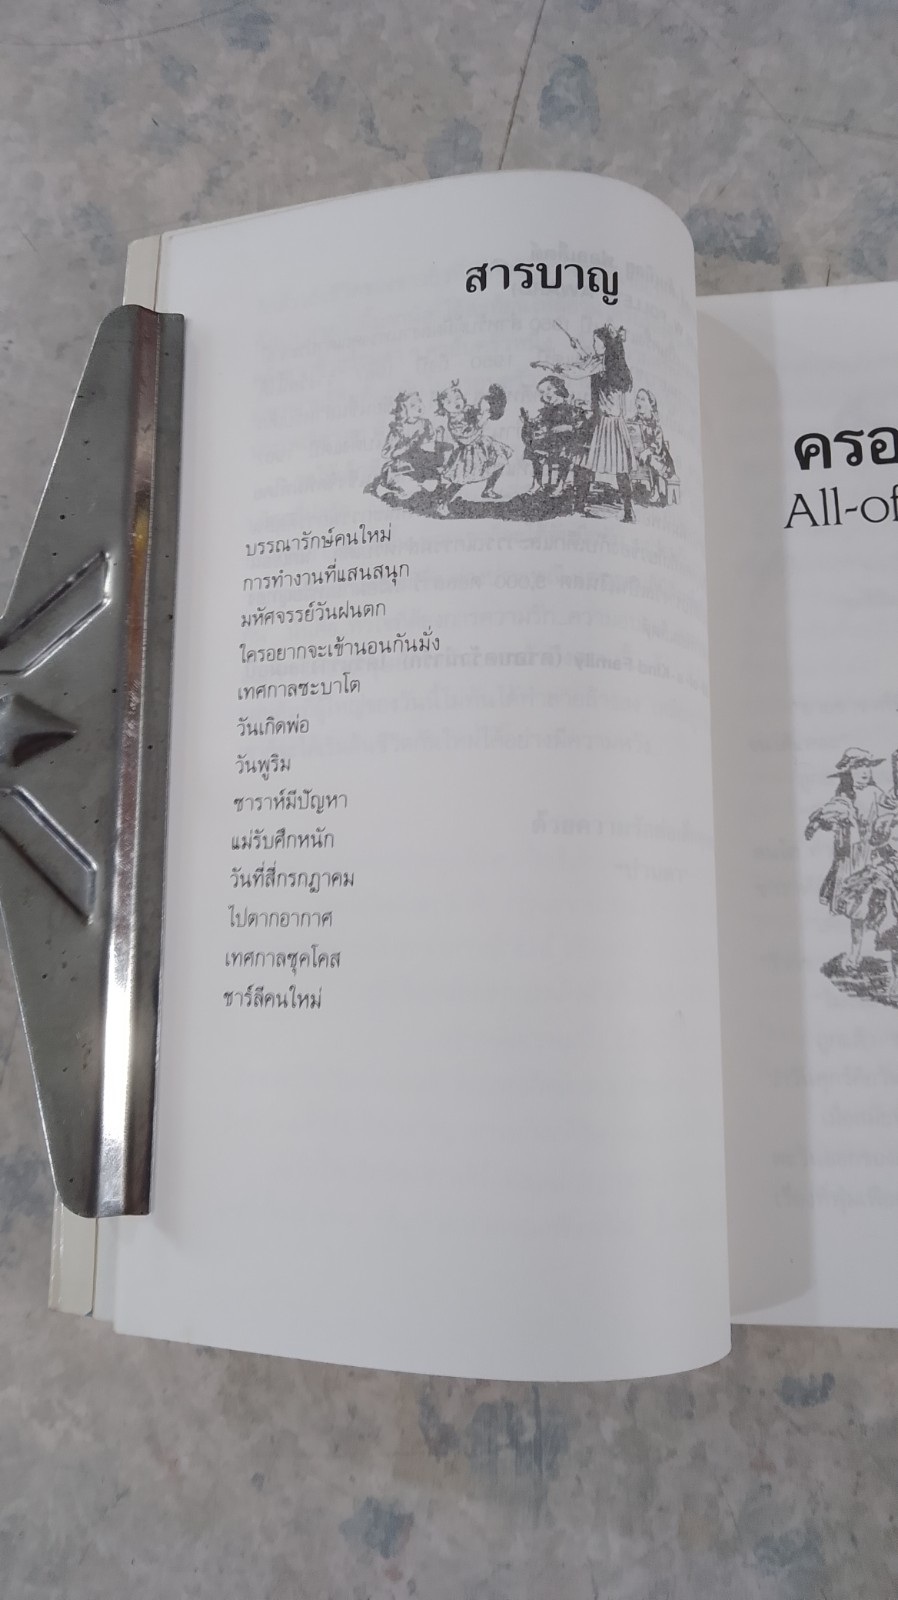 สารบาญ
บรรณารักษ์คนใหม่
การทำงานที่แสนสนุก
มหัศจรรย์วันฝนตก
ใครอยากจะเข้านอนกันมั่ง
เทศกาลซะบาโต
วันเกิดพ่อ
วันพูริม
ซาราห์มีปัญหา
แม่รับศึกหนัก
วันที่สี่กรกฎาคม
ไปตากอากาศ
เทศกาลซุคโคส
ชาร์ลีคนใหม่
ครอ
All-of